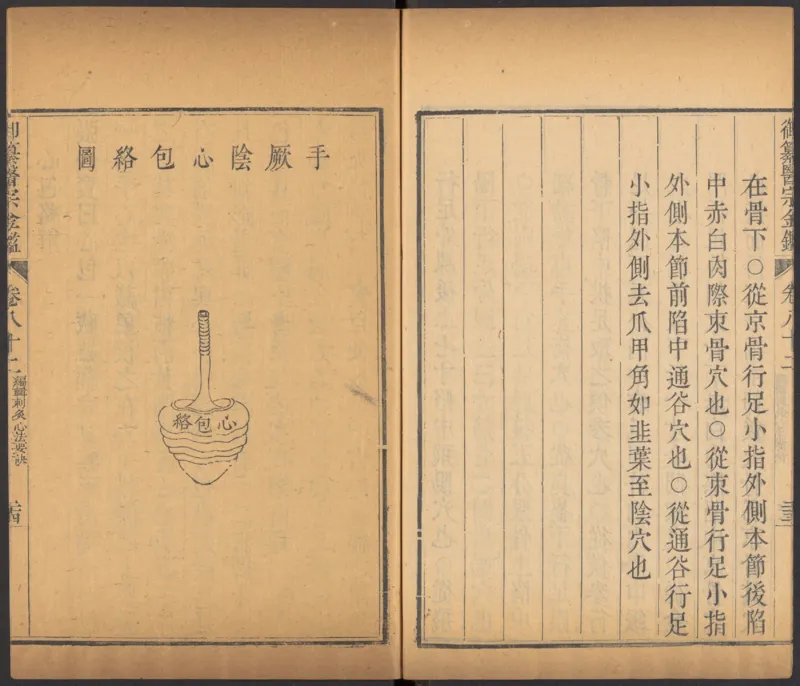 在骨下○從京骨行足小指外側本節後陷
中赤白肉際束骨穴也○從束骨行足小指
外側本節前陷中通谷穴也○從通谷行足
小指外側去爪甲角如韭葉至陰穴也
御纂醫宗金鑑
卷八十二
手厥陰心包絡圖
心包絡
御纂醫宗金鑑
卷八十二
編輯刺灸心法要訣